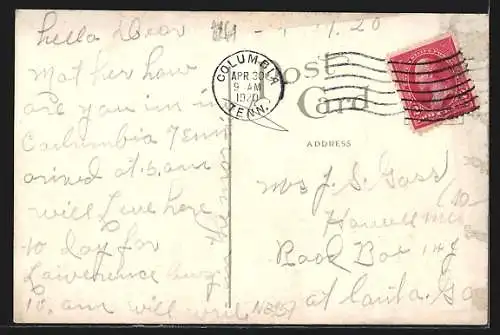 hello Dear
Mother how
are you im in
Columbia Tenn
arived at 5. am
will Leve here
to day for
Lawrenceburg
10. am will write
COLUMBIA
APR 30
9 AM
1920
TENN.
Post
Card
ADDRESS
Mrs J. S. Goss
Howell Mill
Road Box
at Lanta. Ga
N3957